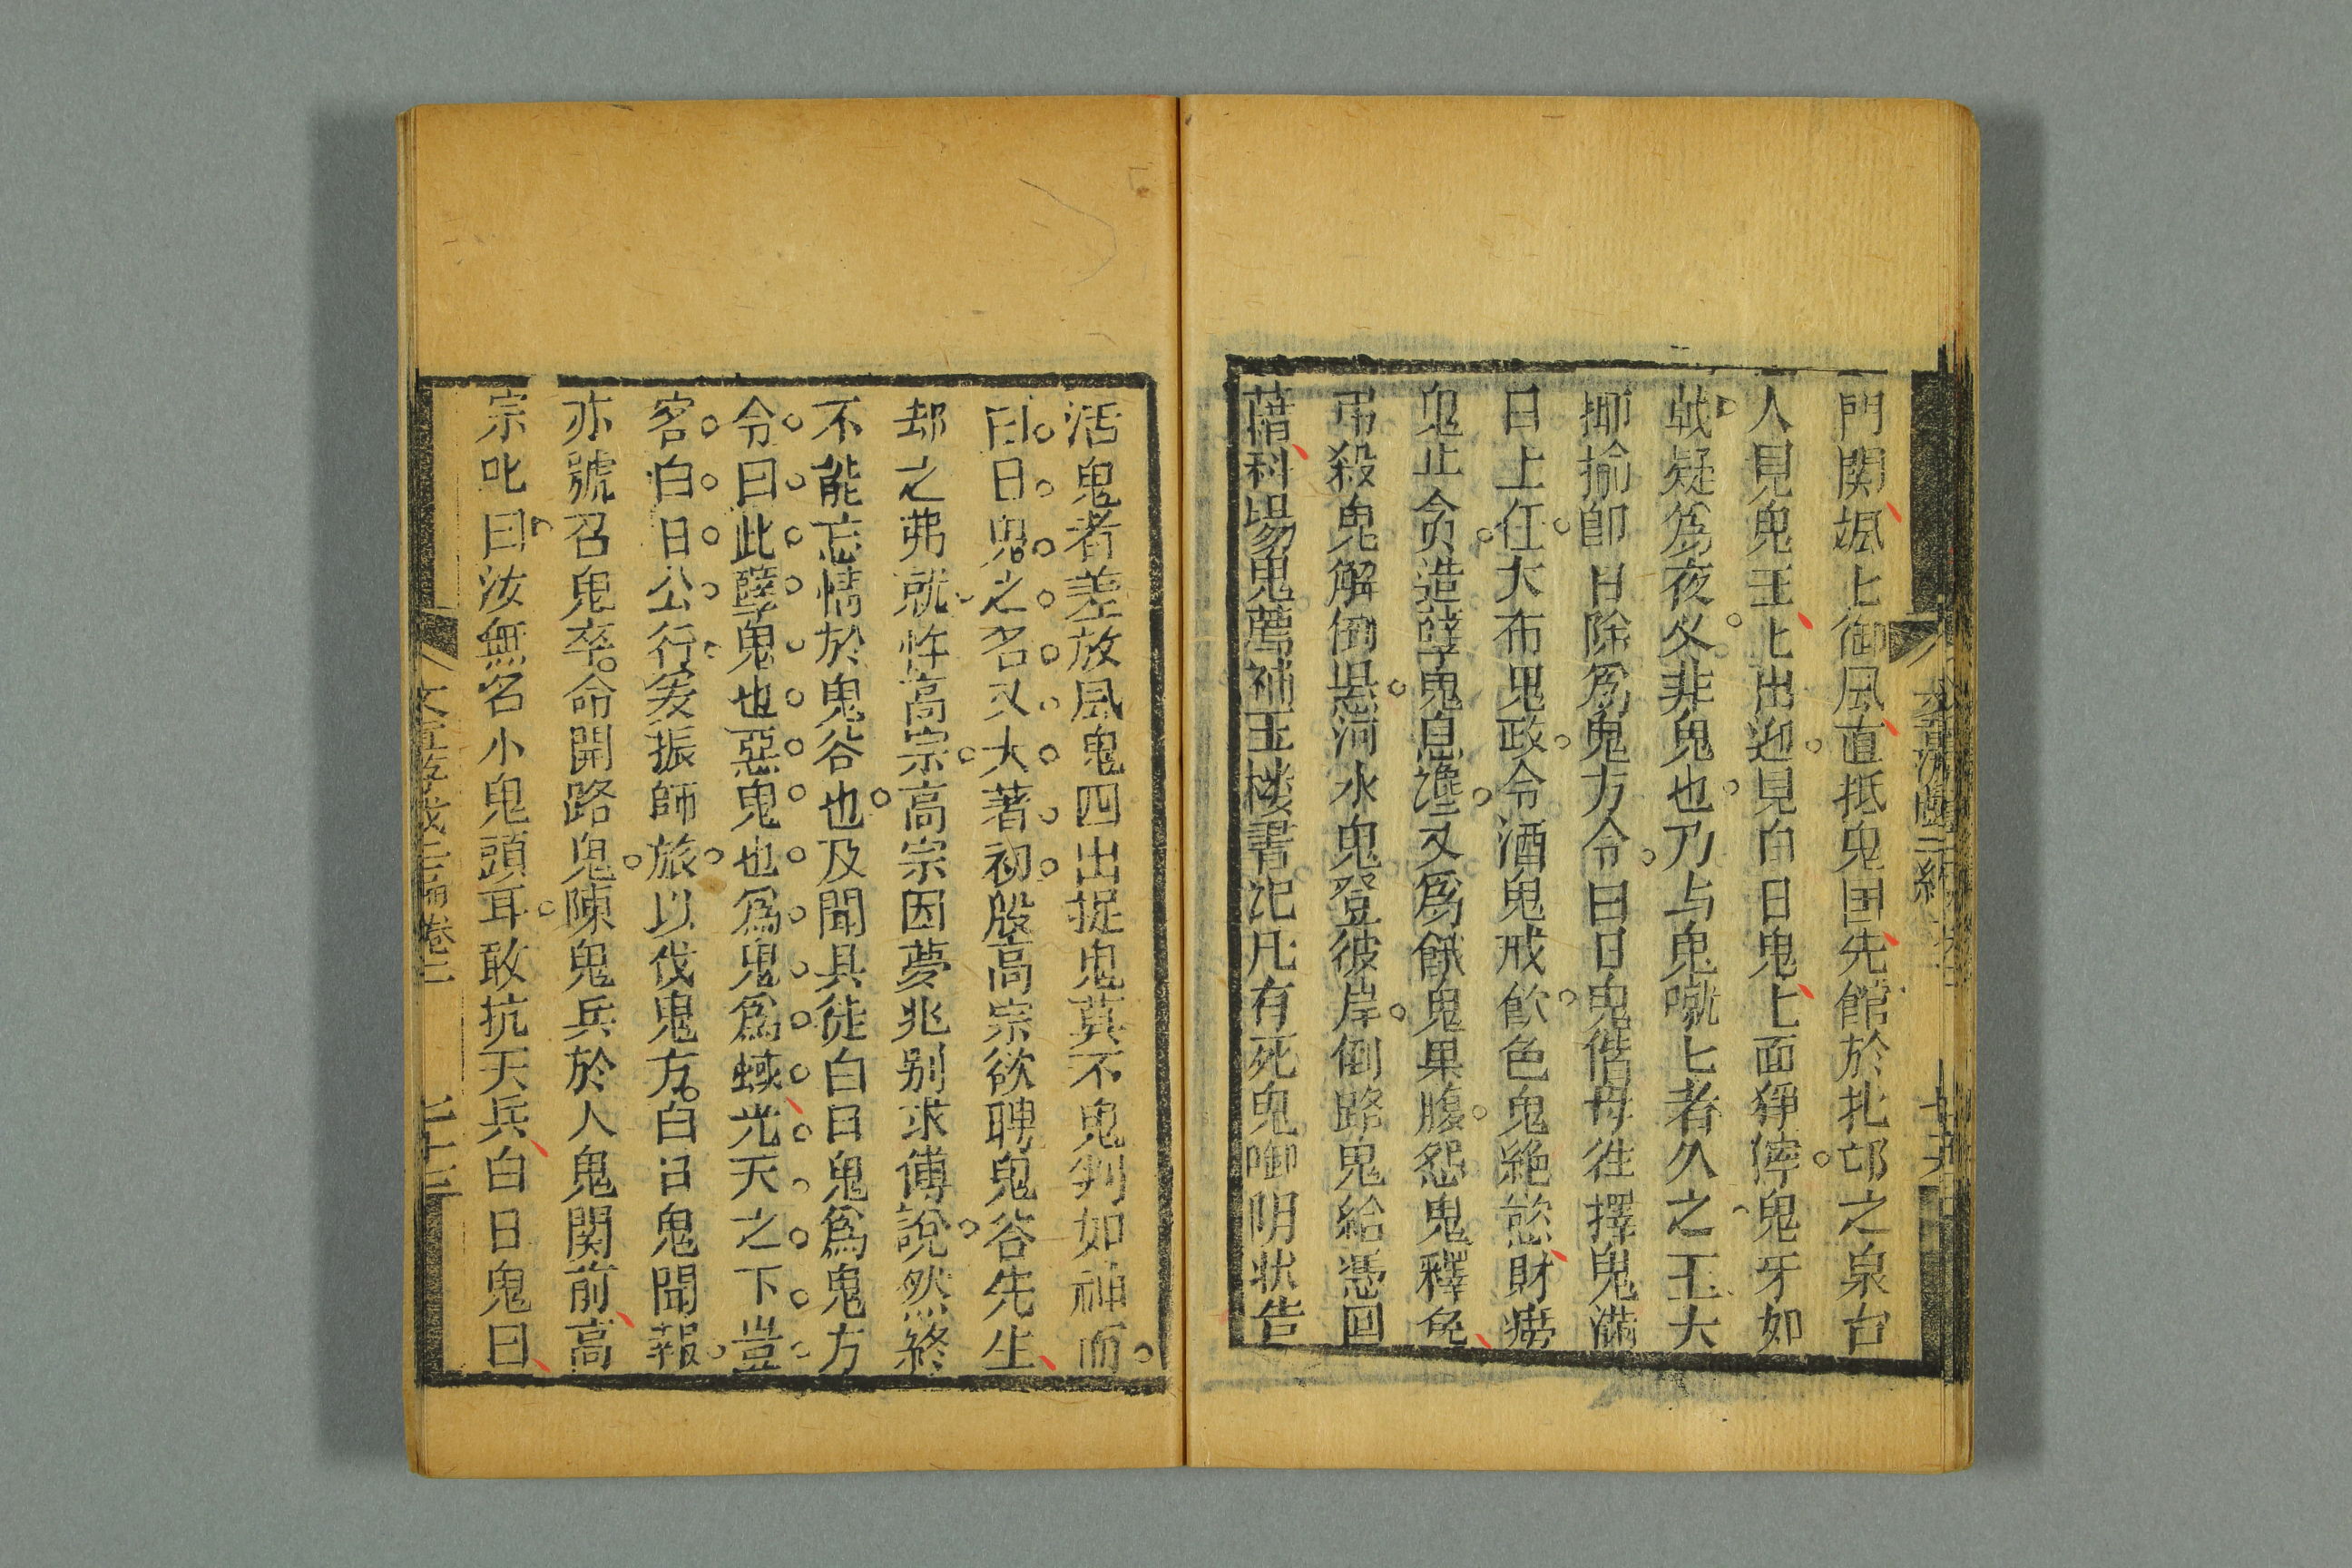 門関颯〻御風直抵鬼国先館於北邙之泉台
人見鬼王〻出迎見白日鬼〻面猙獰鬼牙如
戟疑為夜叉非鬼也乃与鬼噈〻者久之王大
揶揄即日除為鬼方令曰日鬼偕母徃擇鬼滿
日上任大布鬼政令酒鬼戒飮色鬼絶慾財癆
鬼止貪造孽鬼息讒又爲餓鬼果腹怨鬼釋寃
吊殺鬼解倒懸河水鬼登彼岸倒路鬼給憑回
藉科場鬼薦補玉楼書記凡有死鬼啣阴状告
活鬼者差放風鬼四出捉鬼莫不鬼判如神而
白日鬼之名又大著初殷高宗欲聘鬼谷先生
却之弗就忤高宗高宗因夢兆别求傅說然終
不能忘情於鬼谷也及聞其徒白日鬼爲鬼方
令曰此孽鬼也惡鬼也爲鬼爲蜮光天之下豈
容白日公行爰振師旅以伐鬼方白日鬼聞報
亦號召鬼卒命開路鬼陳鬼兵於人鬼関前高
宗叱曰汝無名小鬼頭耳敢抗天兵白日鬼曰
二十三